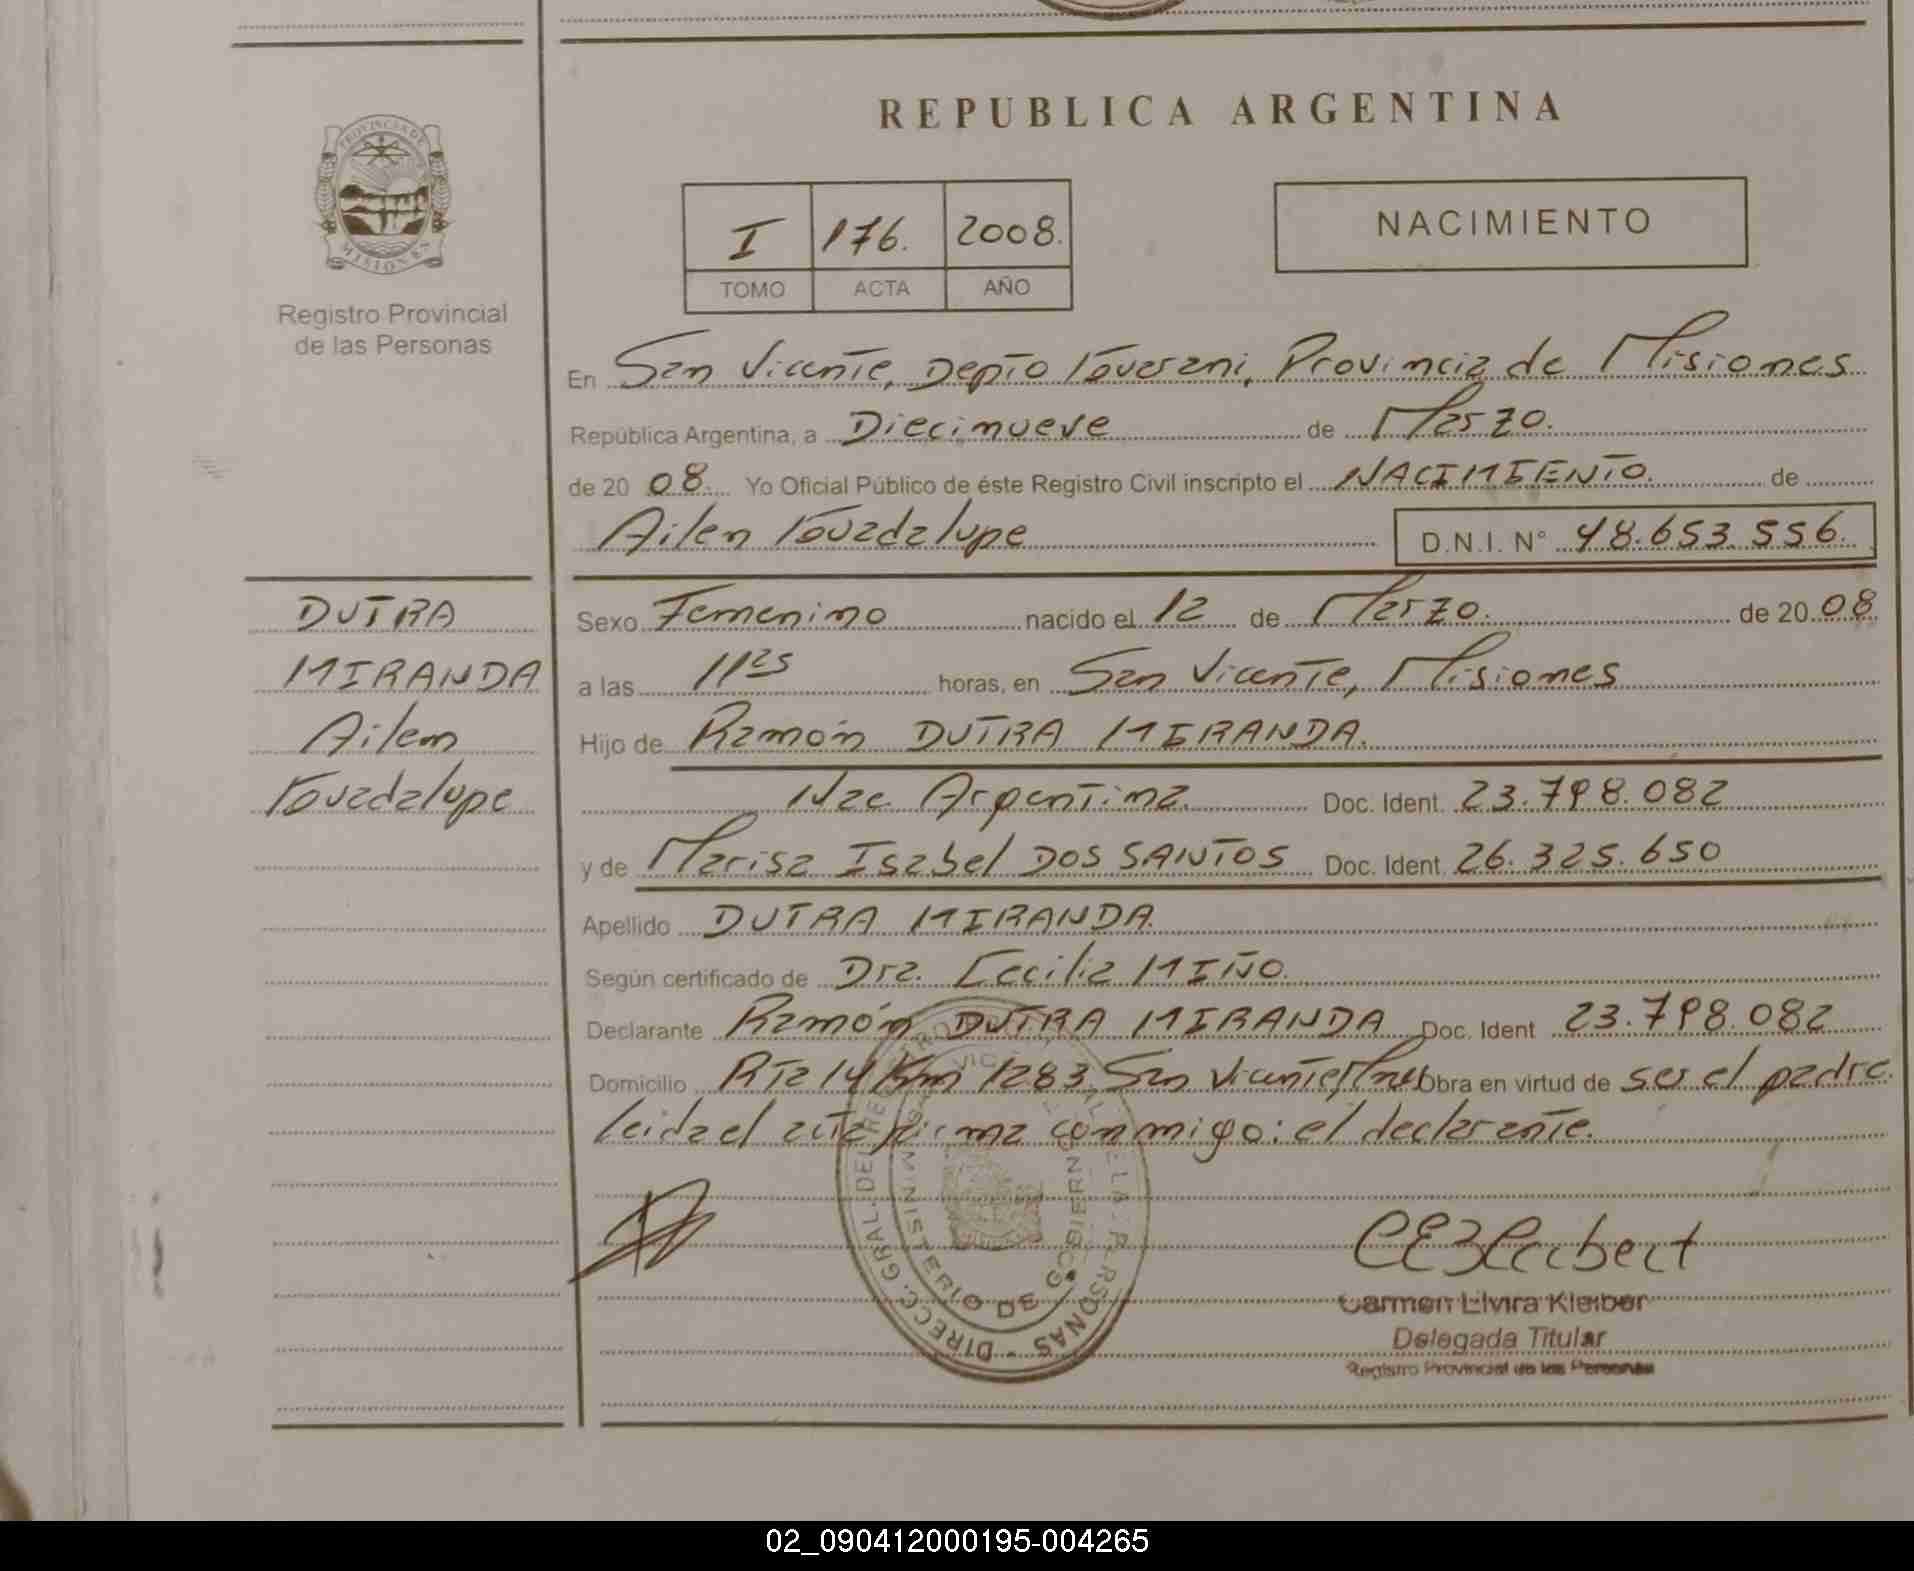 REPUBLICA ARGENTINA
PROVINCIA DE
MISIONES
Registro Provincial
de las Personas
I 176. 2008.
TOMO ACTA AÑO
NACIMIENTO
En San Vicente, Depto Guarani, Provincia de Misiones
República Argentina, a Diecinueve de Marzo.
de 20 08. Yo Oficial Público de éste Registro Civil inscripto el NACIMIENTO. de
Ailen Guadalupe D.N.I. N° 48.653.556.
DUTRA
MIRANDA
Ailem
Guadalupe
Sexo Femenino nacido el 12 de Marzo. de 20 08
a las 11 25 horas, en San Vicente, Misiones
Hijo de Ramón DUTRA MIRANDA.
Nac Argentina. Doc. Ident. 23.798.082
y de Marisa Isabel DOS SANTOS Doc. Ident. 26.325.650
Apellido DUTRA MIRANDA.
Según certificado de Dra. Cecilia MIÑO.
Declarante Ramón DUTRA MIRANDA Doc. Ident 23.798.082
Domicilio Rta 14 Km 1283, San Vicente, Mnes Obra en virtud de ser el padre.
leida el acta firma conmigo: el declarante.
DIRECC. GRAL. DEL REGISTRO DE LAS PERSONAS
MINISTERIO DE GOBIERNO
Carmen Elvira Kleiber
Delegada Titular
Registro Provincial de las Personas
02_090412000195-004265